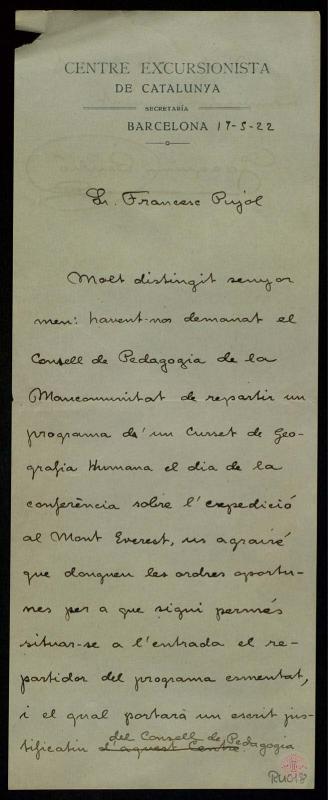 CENTRE EXCURSIONISTA
DE CATALUNYA
SECRETARÍA
BARCELONA 17-5-22
Sr. Francesc Pujol
Molt distingit senyor
meu: havent-nos demanat el
Consell de Pedagogia de la
Mancomunitat de repartir un
programa d'un Curset de Geo-
grafia Humana el dia de la
conferència sobre l'expedició
al Mont Everest, us agrairé
que dongueu les ordres oportu-
nes per a que sigui permés
situar-se a l'entrada el re-
partidor del programa esmentat,
i el qual portarà un escrit jus-
del Consell de Pedagogia
tificatiu d'aquest Centre